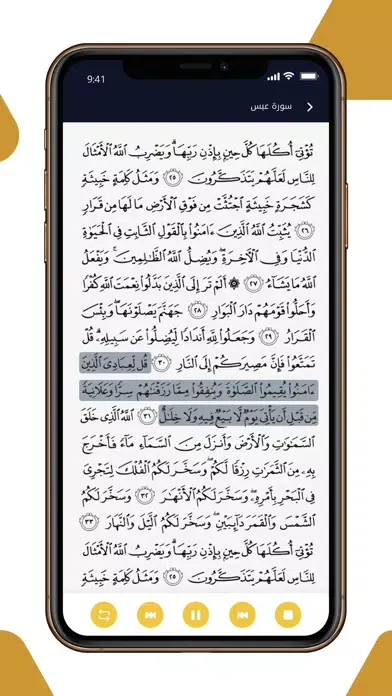 9:41
سورة عبس
تُؤْتِىٓ أُكُلَهَا كُلَّ حِينٍۭ بِإِذْنِ رَبِّهَا ۗ وَيَضْرِبُ ٱللَّهُ ٱلْأَمْثَالَ
لِلنَّاسِ لَعَلَّهُمْ يَتَذَكَّرُونَ ٢٥ وَمَثَلُ كَلِمَةٍ خَبِيثَةٍ
كَشَجَرَةٍ خَبِيثَةٍ ٱجْتُثَّتْ مِن فَوْقِ ٱلْأَرْضِ مَا لَهَا مِن قَرَارٍ
٢٦ يُثَبِّتُ ٱللَّهُ ٱلَّذِينَ ءَامَنُوا۟ بِٱلْقَوْلِ ٱلثَّابِتِ فِى ٱلْحَيَوٰةِ
ٱلدُّنْيَا وَفِى ٱلْـَٔاخِرَةِ ۖ وَيُضِلُّ ٱللَّهُ ٱلظَّـٰلِمِينَ ۚ وَيَفْعَلُ
ٱللَّهُ مَا يَشَآءُ ٢٧ ۞ أَلَمْ تَرَ إِلَى ٱلَّذِينَ بَدَّلُوا۟ نِعْمَتَ ٱللَّهِ كُفْرًا
وَأَحَلُّوا۟ قَوْمَهُمْ دَارَ ٱلْبَوَارِ ٢٨ جَهَنَّمَ يَصْلَوْنَهَا ۖ وَبِئْسَ
ٱلْقَرَارُ ٢٩ وَجَعَلُوا۟ لِلَّهِ أَندَادًا لِّيُضِلُّوا۟ عَن سَبِيلِهِۦ ۗ قُلْ
تَمَتَّعُوا۟ فَإِنَّ مَصِيرَكُمْ إِلَى ٱلنَّارِ ٣٠ قُل لِّعِبَادِىَ ٱلَّذِينَ
ءَامَنُوا۟ يُقِيمُوا۟ ٱلصَّلَوٰةَ وَيُنفِقُوا۟ مِمَّا رَزَقْنَـٰهُمْ سِرًّا وَعَلَانِيَةً
مِّن قَبْلِ أَن يَأْتِىَ يَوْمٌ لَّا بَيْعٌ فِيهِ وَلَا خِلَـٰلٌ ٣١ ٱللَّهُ ٱلَّذِى خَلَقَ
ٱلسَّمَـٰوَٰتِ وَٱلْأَرْضَ وَأَنزَلَ مِنَ ٱلسَّمَآءِ مَآءً فَأَخْرَجَ
بِهِۦ مِنَ ٱلثَّمَرَٰتِ رِزْقًا لَّكُمْ ۖ وَسَخَّرَ لَكُمُ ٱلْفُلْكَ لِتَجْرِىَ
فِى ٱلْبَحْرِ بِأَمْرِهِۦ ۖ وَسَخَّرَ لَكُمُ ٱلْأَنْهَـٰرَ ٣٢ وَسَخَّرَ لَكُمُ
ٱلشَّمْسَ وَٱلْقَمَرَ دَآئِبَيْنِ ۖ وَسَخَّرَ لَكُمُ ٱلَّيْلَ وَٱلنَّهَارَ ٣٣
تُؤْتِىٓ أُكُلَهَا كُلَّ حِينٍۭ بِإِذْنِ رَبِّهَا ۗ وَيَضْرِبُ ٱللَّهُ ٱلْأَمْثَالَ
لِلنَّاسِ لَعَلَّهُمْ يَتَذَكَّرُونَ ٢٥ وَمَثَلُ كَلِمَةٍ خَبِيثَةٍ